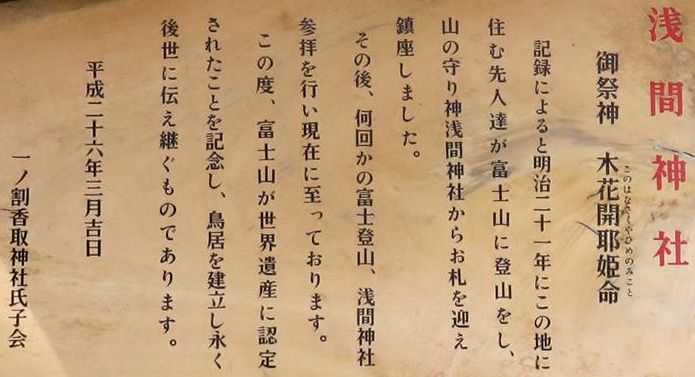 浅間神社
御祭神　木花開耶姫命
このはなさくやひめのみこと
記録によると明治二十一年にこの地に
住む先人達が富士山に登山をし、
山の守り神浅間神社からお札を迎え
鎮座しました。
その後、何回かの富士登山、浅間神社
参拝を行い現在に至っております。
この度、富士山が世界遺産に認定
されたことを記念し、鳥居を建立し永く
後世に伝え継ぐものであります。
平成二十六年三月吉日
一ノ割香取神社氏子会